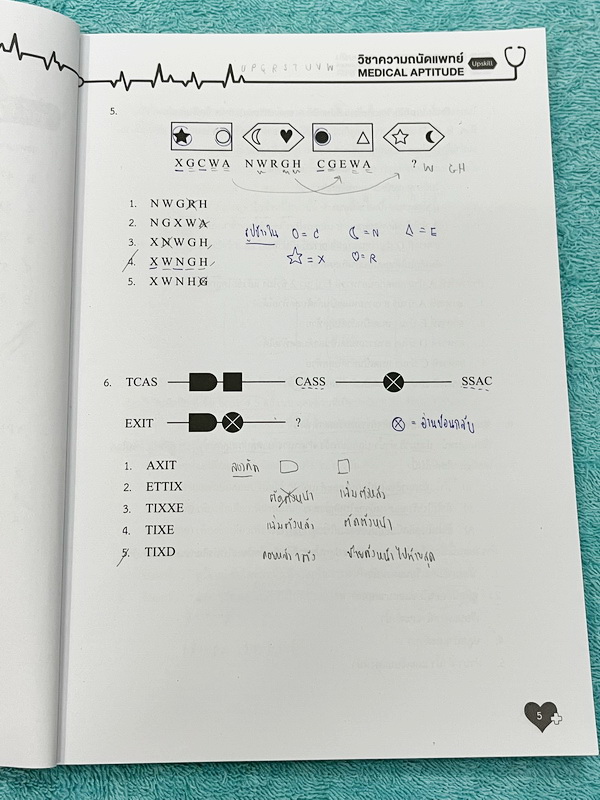 วิชาความถนัดแพทย์
MEDICAL APTITUDE
Upskill
O P Q R S T U V W
5.
XGCWA NWRGH CGEWA ? W GH
1. NWGRH
2. NGXWA
3. XNWGH
4. XWNGH
5. XWNHG
รูปข้างใน O = C ☾ = N △ = E
☆ = X ♡ = R
6. TCAS CASS SSAC
EXIT ?
⊗ = อ่านย้อนกลับ
1. AXIT
2. ETTIX
3. TIXXE
4. TIXE
5. TIXD
ตัดตัวหน้า เพิ่มตัวหลัง
เพิ่มตัวหลัง ตัดตัวหน้า
ย้ายตัวหน้าไปท้ายสุด
5